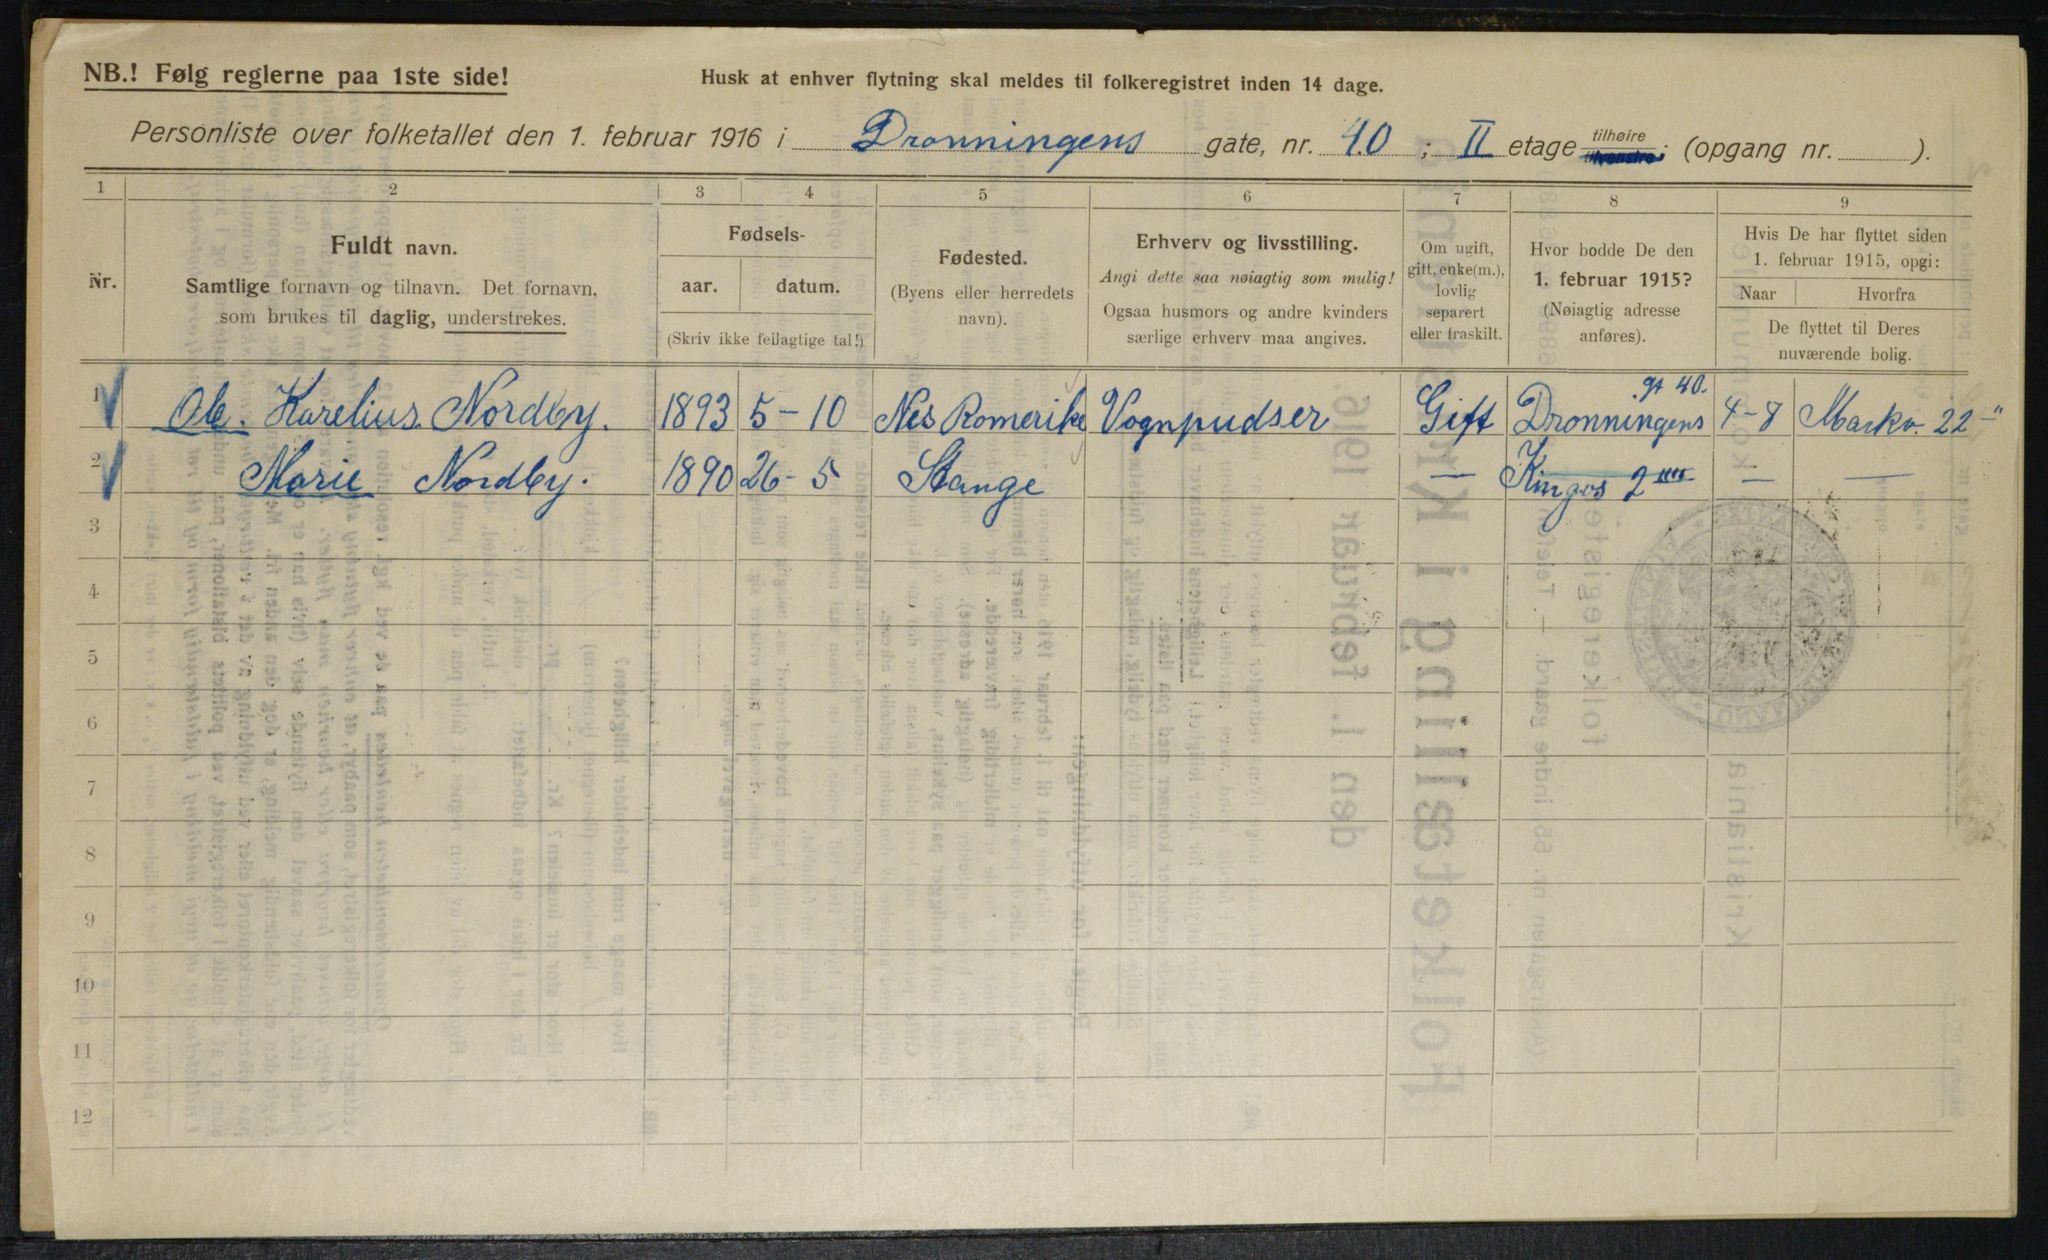 NB.! Følg reglerne paa 1ste side!
Husk at enhver flytning skal meldes til folkeregistret inden 14 dage.
Personliste over folketallet den 1. februar 1916 i Dronningens gate, nr. 40 ; II etage tilhøire tilvenstre ; (opgang nr. ).
1 2 3 4 5 6 7 8 9
Nr.
Fuldt navn.
Samtlige fornavn og tilnavn. Det fornavn,
som brukes til daglig, understrekes.
Fødsels-
aar. datum.
(Skriv ikke feilagtige tal!)
Fødested.
(Byens eller herredets
navn).
Erhverv og livsstilling.
Angi dette saa nøiagtig som mulig!
Ogsaa husmors og andre kvinders
særlige erhverv maa angives.
Om ugift,
gift, enke(m.),
lovlig
separert
eller fraskilt.
Hvor bodde De den
1. februar 1915?
(Nøiagtig adresse
anføres).
Hvis De har flyttet siden
1. februar 1915, opgi:
Naar Hvorfra
De flyttet til Deres
nuværende bolig.
1 Ole. Karelius. Nordby. 1893 5-10 Nes Romerike Vognpudser Gift Dronningens gt 40. 4-8 Markv. 22
2 Marie Nordby. 1890 26-5 Stange — Kingos 2 — —
3
4
5
6
7
8
9
10
11
12